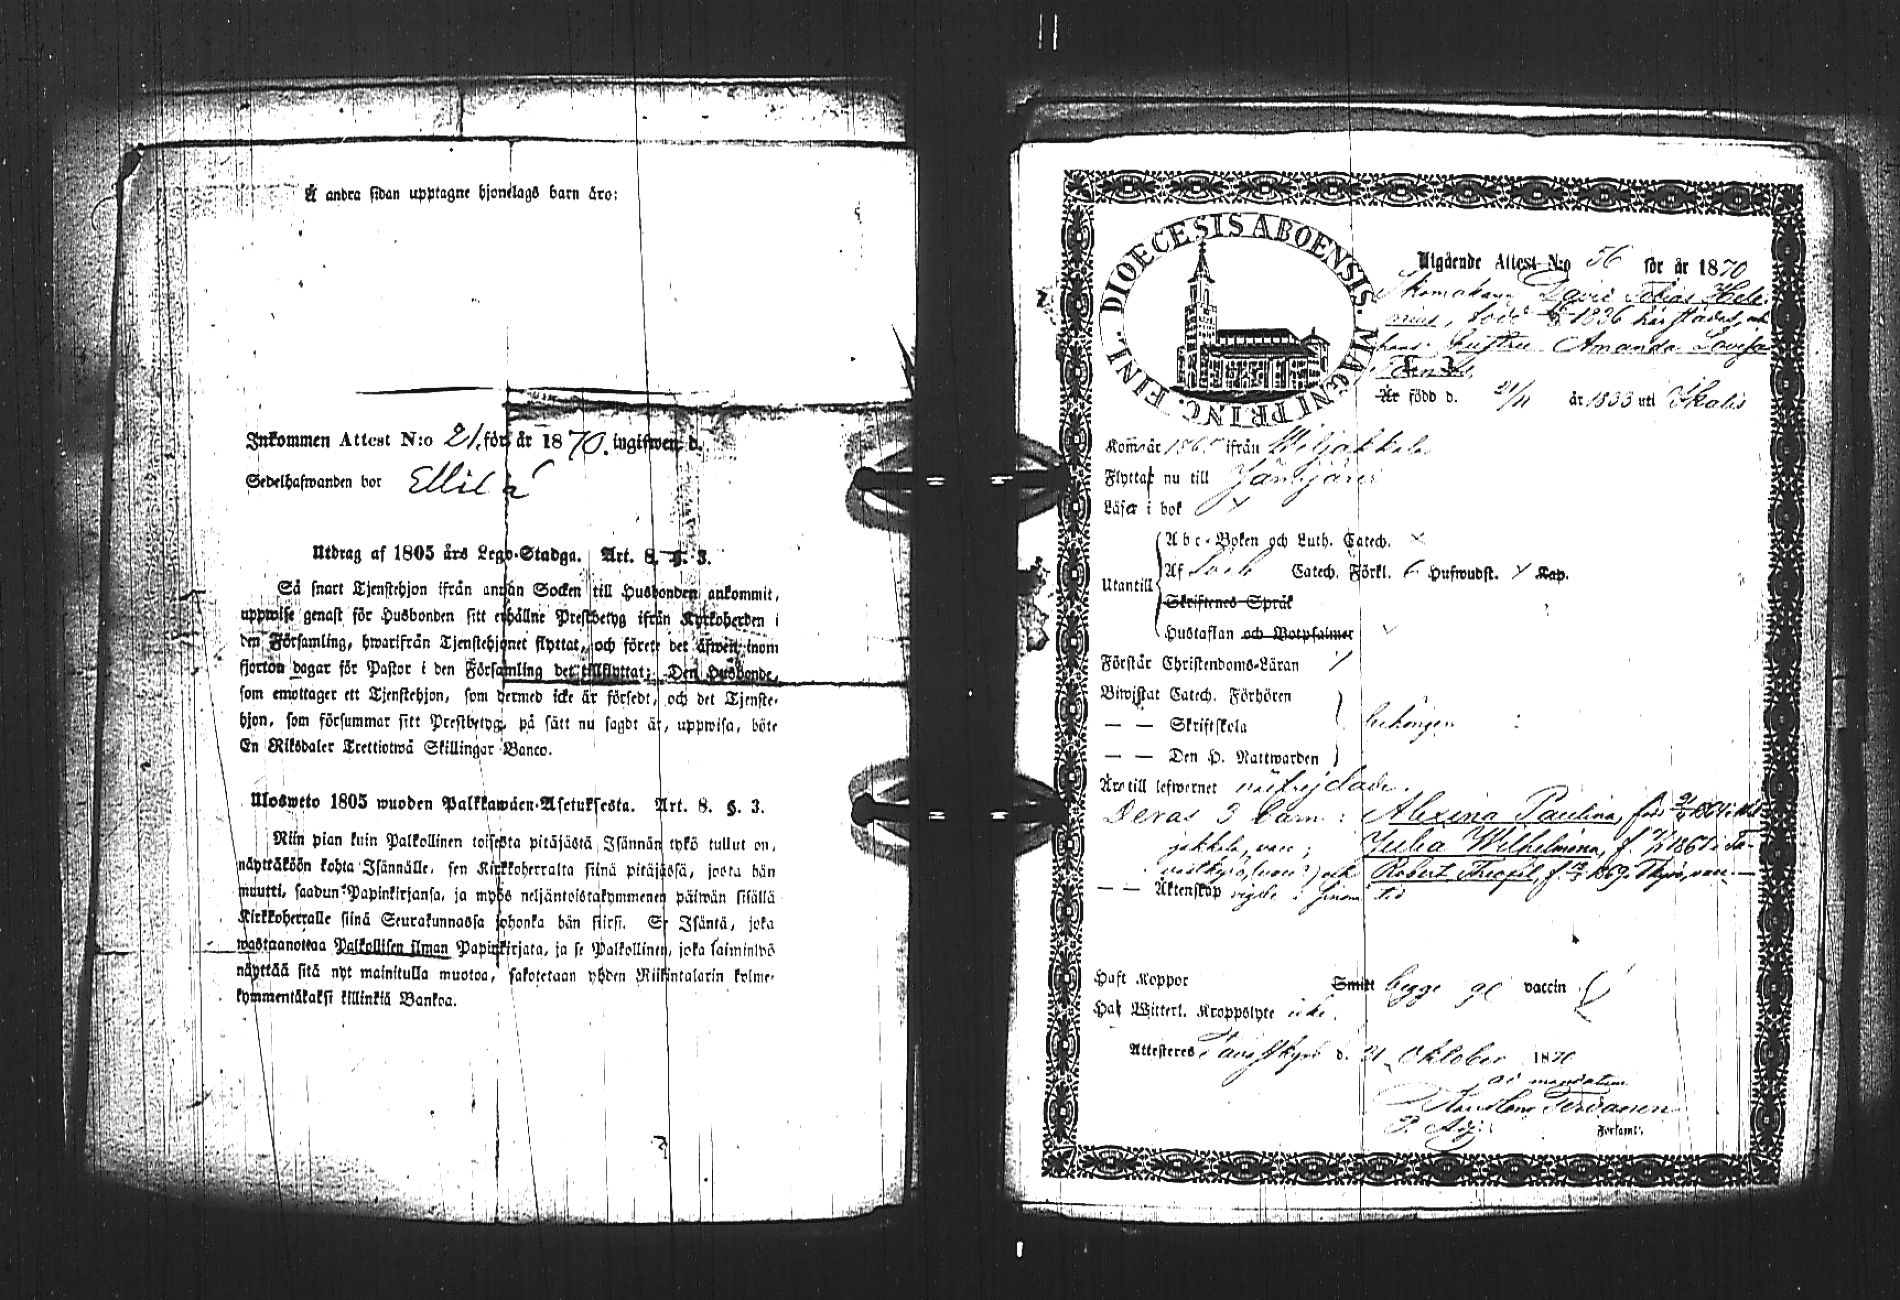 Å andra sidan upptagne hjonelags barn äro:
Inkommen Attest N:o 21. för år 1870. ingifwen d.
Sedelhafwanden bor Ellilä
Utdrag af 1805 års Lego-Stadga. Art. 8. §. 3.
Så snart Tjenstehjon ifrån annan Socken till Husbonden ankommit,
uppwise genast för Husbonden sitt erhållne Prestbetyg ifrån Kyrkoherden i
den Församling, hwarifrån Tjenstehjonet flyttat, och förete det äfwen inom
fjorton dagar för Pastor i den Församling det tillflyttat: Den Husbonde,
som emottager ett Tjenstehjon, som dermed icke är försedt, och det Tjenste-
hjon, som försummar sitt Prestbetyg, på sätt nu sagdt är, uppwisa, böte
En Riksdaler Trettiotwå Skillingar Banco.
Ulosweto 1805 wuoden Palkkawäen-Asetuksesta. Art. 8. §. 3.
Niin pian kuin Palkollinen toisesta pitäjästä Isännän tykö tullut on,
näyttäköön kohta Isännälle, sen Kirkkoherralta siinä pitäjässä, josta hän
muutti, saadun Papinkirjansa, ja myös neljäntoistakymmenen päiwän sisällä
Kirkkoherralle siinä Seurakunnassa johonka hän siirsi. Se Isäntä, joka
wastaanottaa Palkollisen ilman Papinkirjata, ja se Palkollinen, joka laiminlyö
näyttää sitä nyt mainitulla muotoa, sakotetaan yhden Riikintalarin kolme-
kymmentäkaksi killinkiä Bankoa.
DIOECESIS ABOENSIS. MAGNI PRINC. FINL.
Utgående Attest N:o 56 för år 1870
Skomakaren David Tobias Hele-
nius, född 1836 härstädes, och
hans hustru Amanda Lovisa
Är född d. 21/11 år 1833 uti Ikalis
Kom år 186 ifrån Wiljakkala
Flyttar nu till Jämijärvi
Läser i bok x
Abc-Boken och Luth. Catech. x
Utantill
Af Catech. Förkl. 6 Hufwudst. Kap.
Skriftenes Språk
Hustaflan och Botpsalmer
Förstår Christendoms-Läran
Biwistat Catech. Förhören
— — Skriftskola
— — Den H. Nattwarden
Äro till lefwernet wälfrejdade.
Deras 3 barn: Alexina Paulina, född 1861 i Wil-
jakkala, vacc; Julia Wilhelmina, f.
och Robert Theofil, f. 1869
— — Äktenskap vigde
Haft Koppor Smitt begge ega vaccin
Har Witterl. Kroppslyte icke.
Attesteres Tavastkyro d. 21 Oktober 1870
ad mandatum
Tervanen
Forsamt.